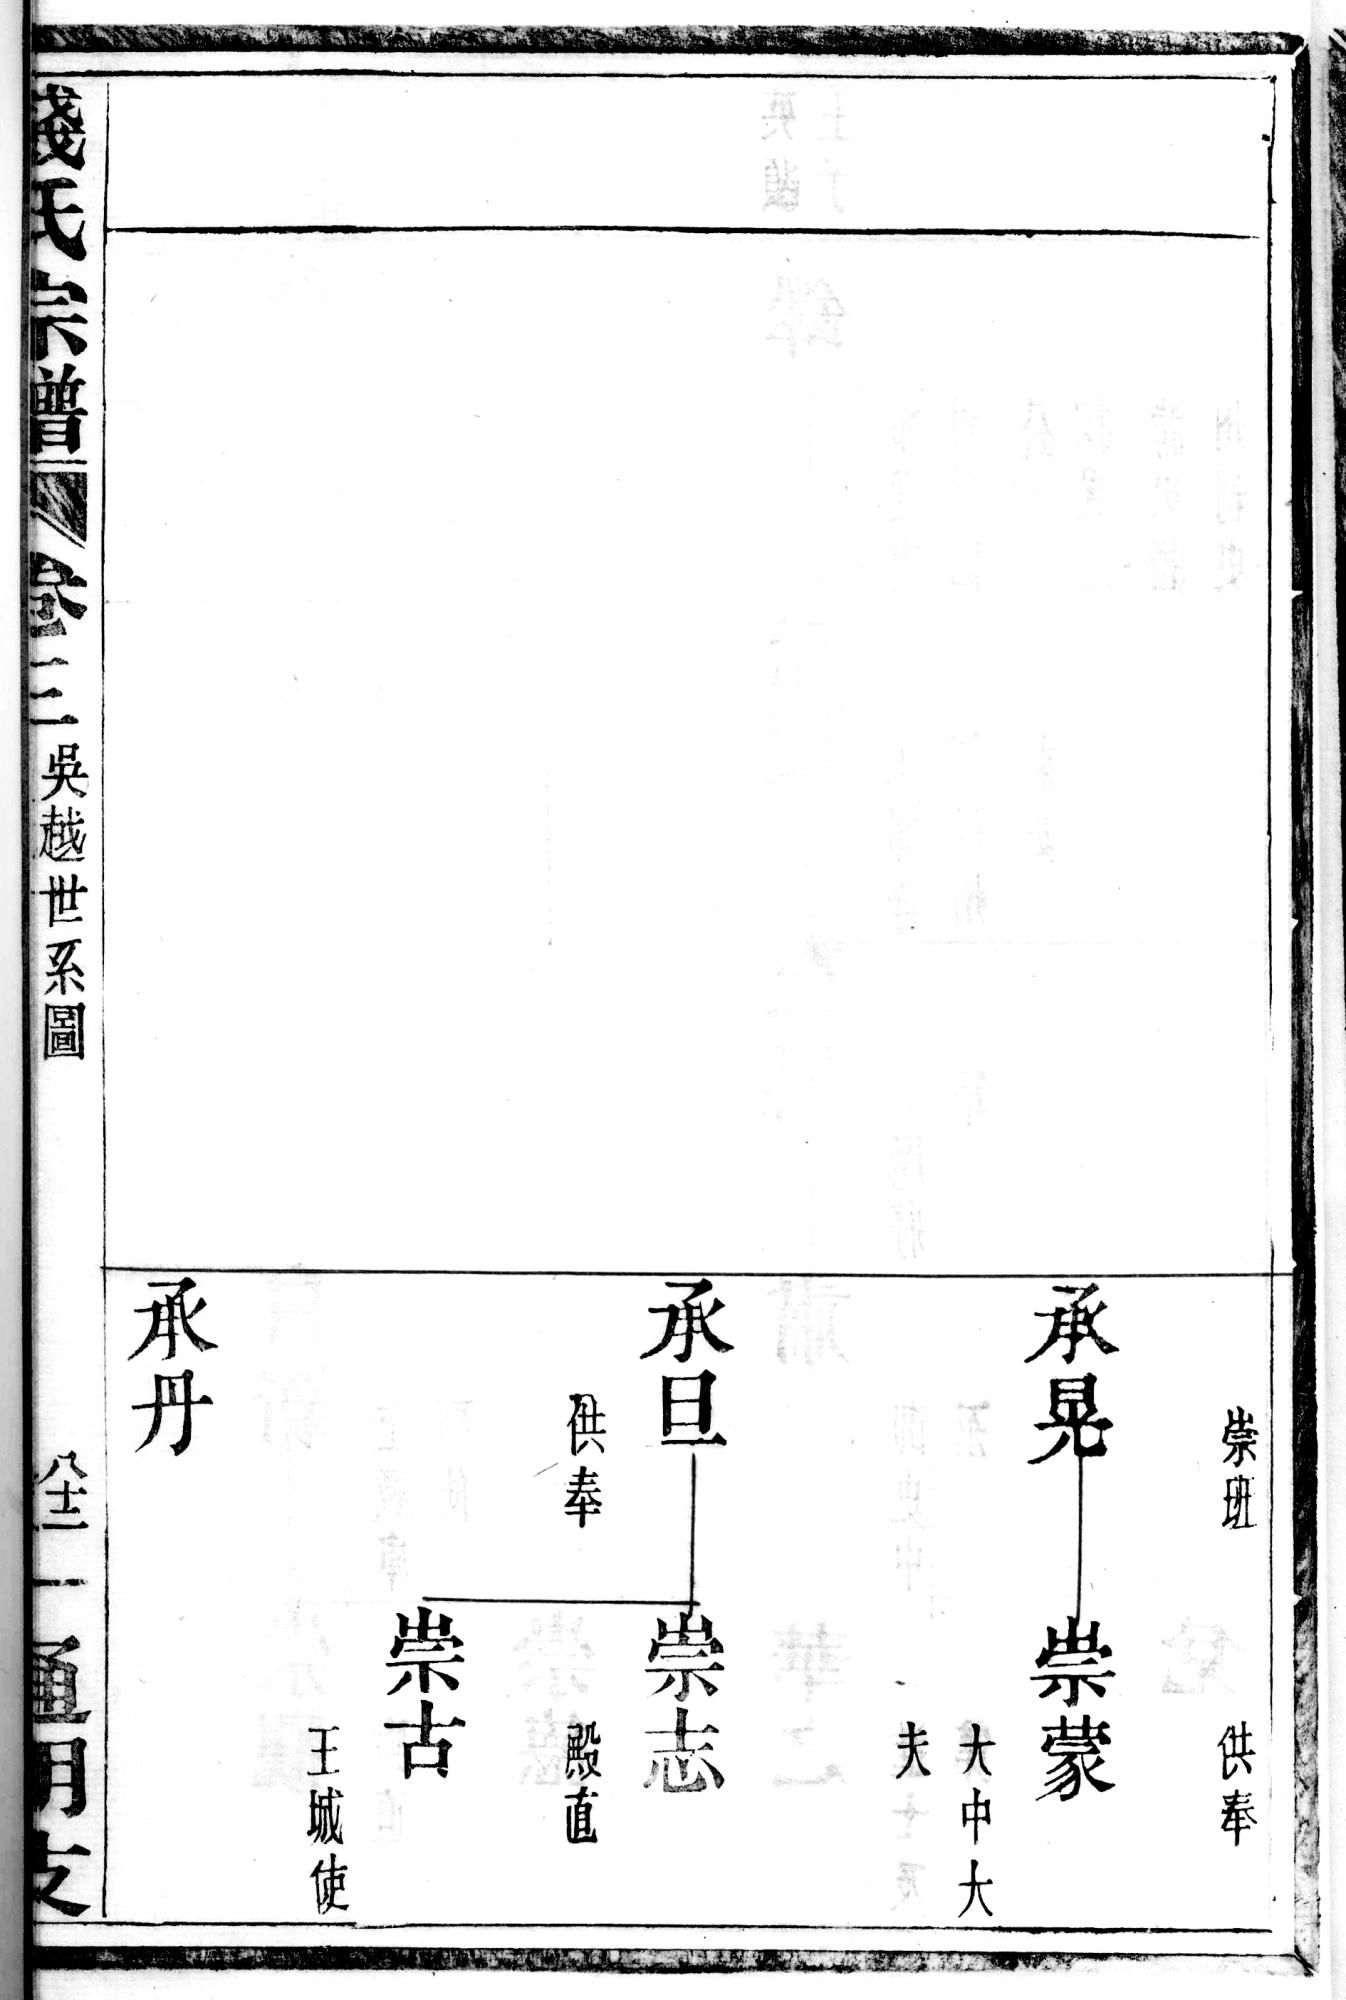 崇班
供奉
承晃
崇蒙
大中大
夫
承旦
崇志
供奉
殿直
崇古
王城使
承丹
錢氏宗譜
卷三
吳越世系圖
通明支